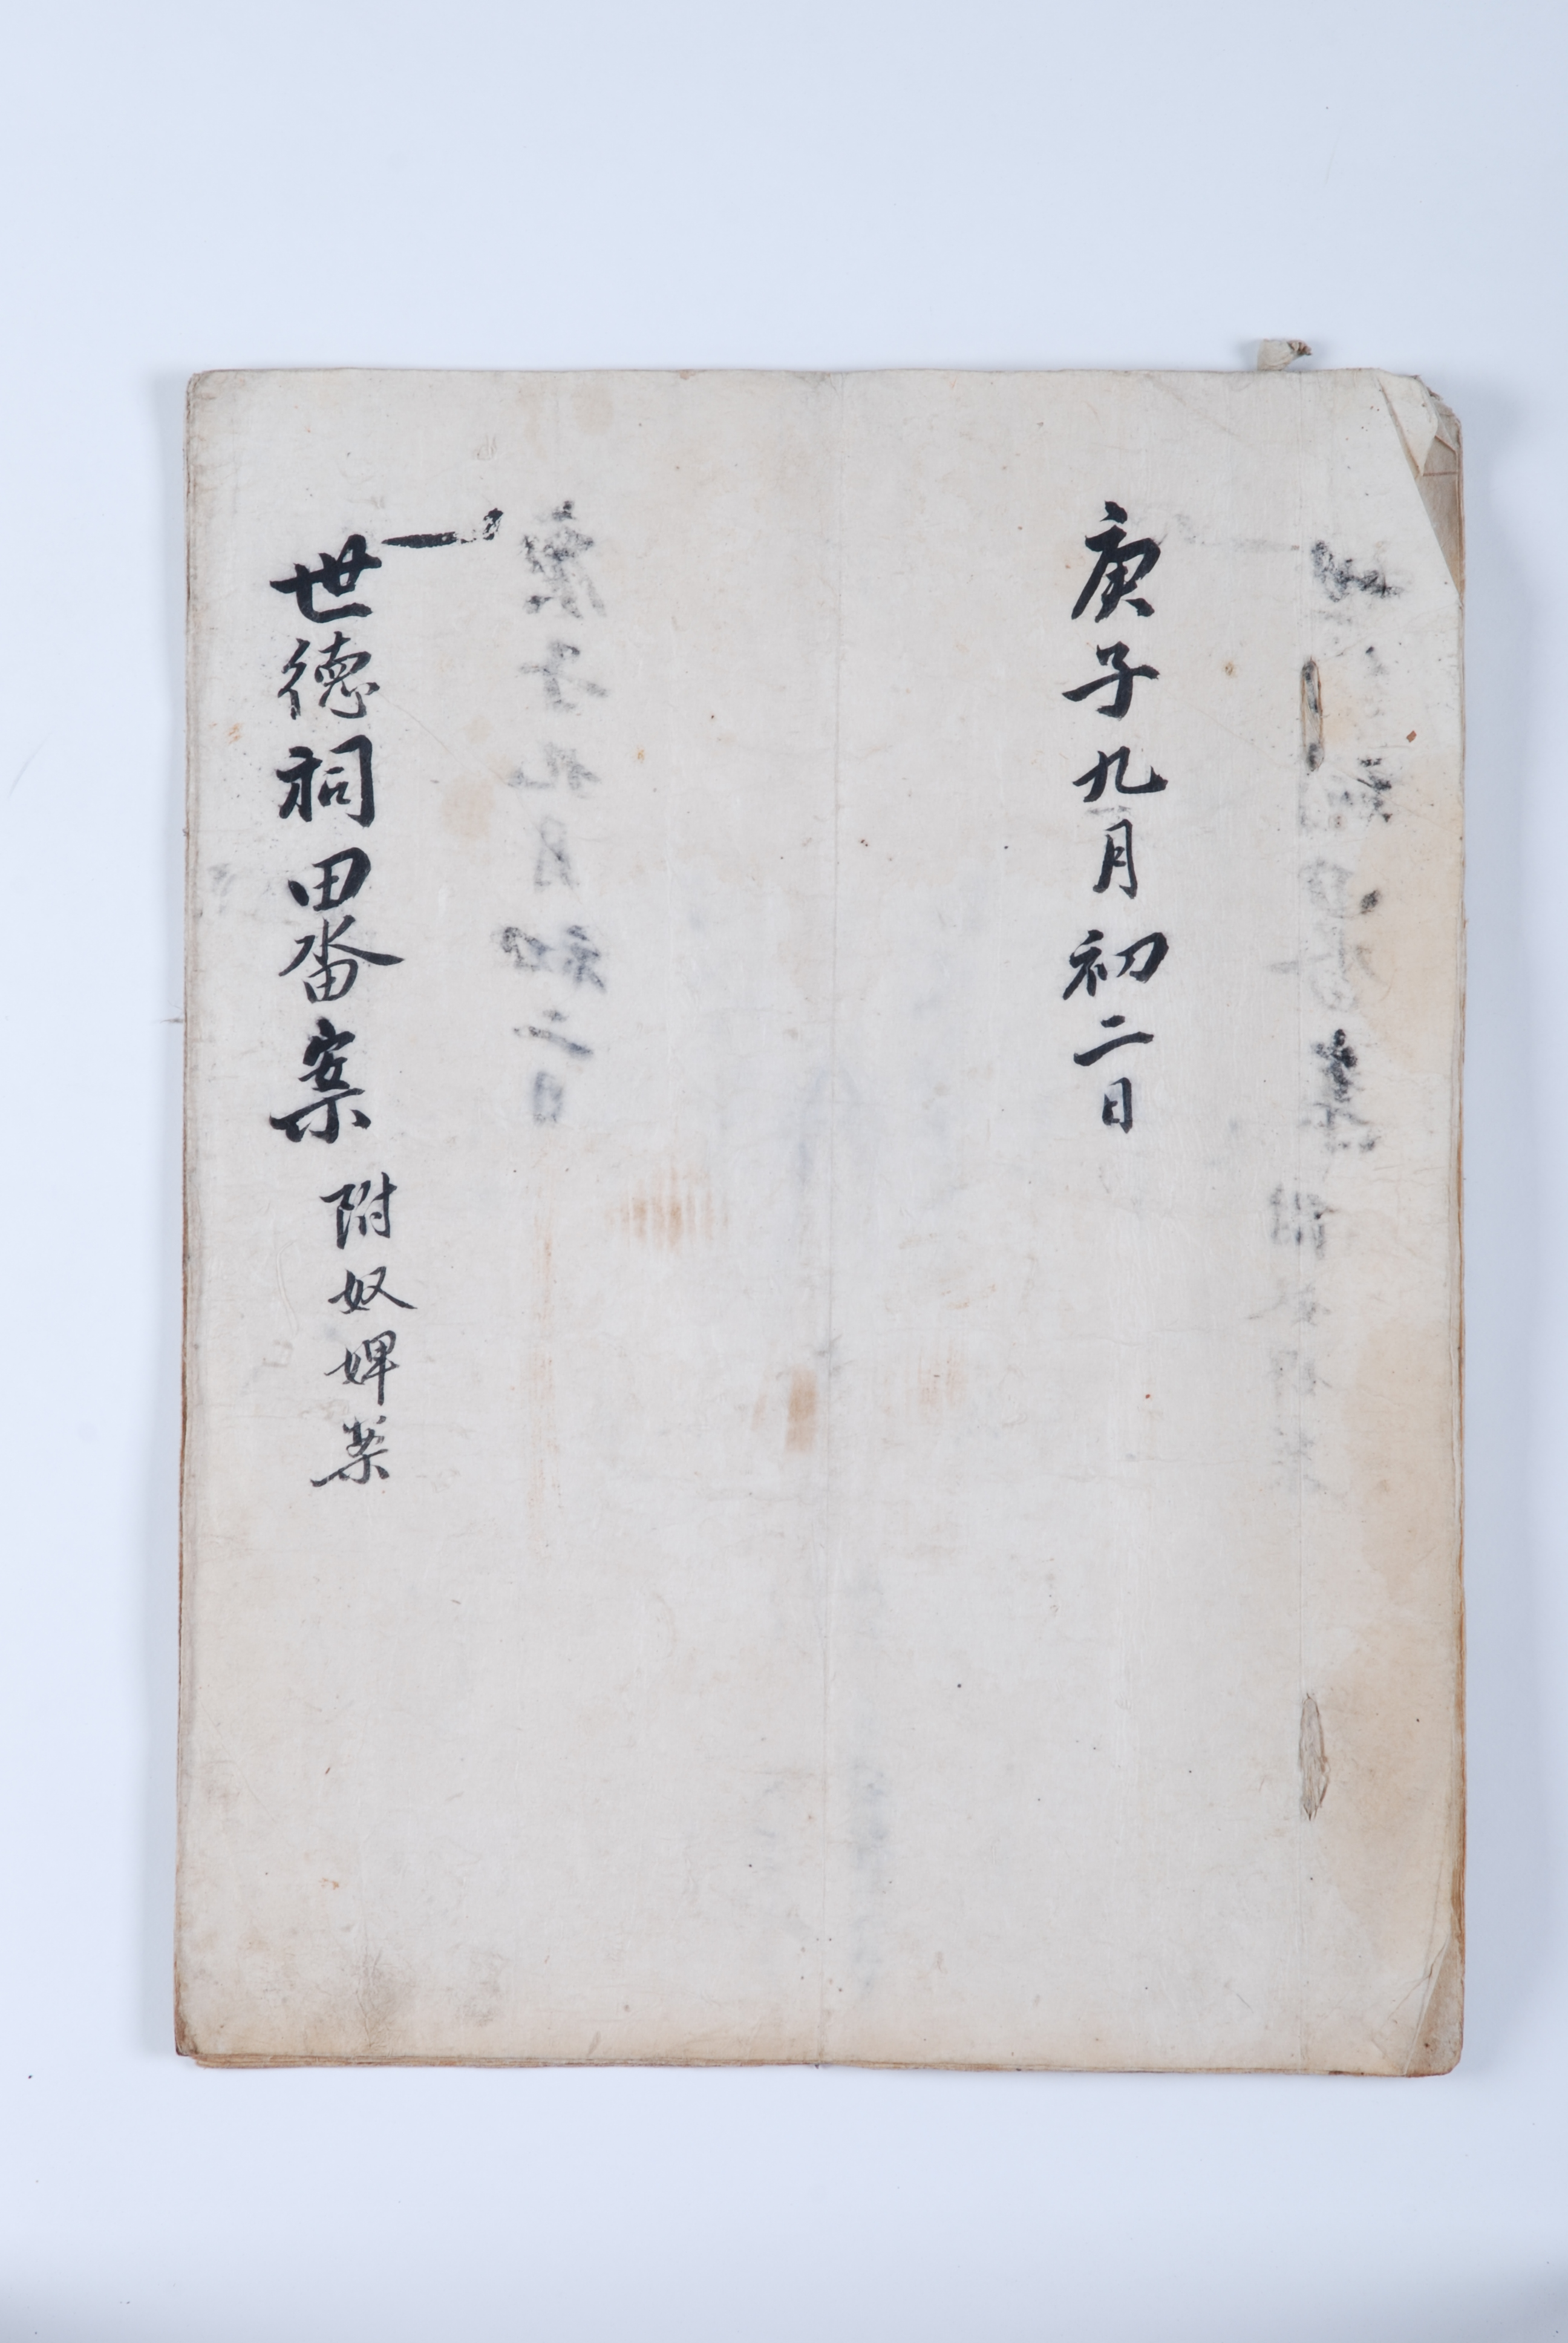 庚子九月初二日
世德祠田畓案 附奴婢案